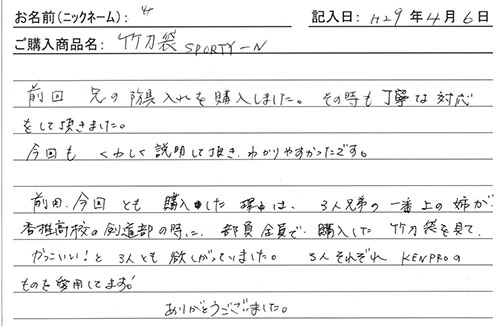 お名前(ニックネーム): 記入日: H29年4月6日
ご購入商品名: 竹刀袋 SPORTY-N
前回 兄の防具入れを購入しました。その時も丁寧な対応
をして頂きました。
今回も くわしく説明して頂き、わかりやすかったです。
前回、今回とも 購入した理由は、3人兄弟の一番上の姉が
香椎高校の剣道部の時に、部員全員で、購入した 竹刀袋を見て、
かっこいい!と 3人とも欲しがっていました。 3人それぞれ KENPROの
ものを愛用してます!
ありがとうございました。